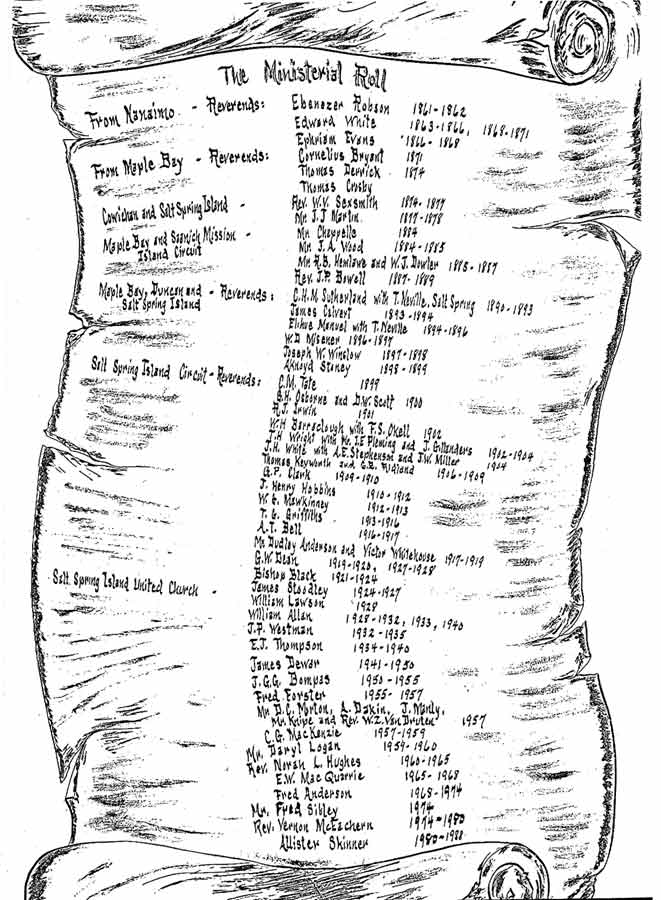 The Ministerial Roll
From Nanaimo - Reverends: Ebenezer Robson 1861-1862
Edward White 1863-1866, 1868-1871
Ephriam Evans 1866-1868
From Maple Bay - Reverends: Cornelius Bryant 1871
Thomas Derrick 1874
Thomas Crosby
Cowichan and Salt Spring Island - Rev. W.V. Sexsmith 1874-1877
Mr. J.J Martin 1877-1878
Maple Bay and Saanich Mission - Mr. Chappelle 1884
Island Circuit Mr. J.A. Wood 1884-1885
Mr. R.B. Hemlawe and W.J. Dowler 1885-1887
Rev. J.P. Bowell 1887-1889
Maple Bay, Duncan and - Reverends: C.H.M. Sutherland with T. Neville, Salt Spring 1890-1893
Salt Spring Island James Calvert 1893-1894
Elihue Manuel with T. Neville 1894-1896
W.D Misener 1896-1897
Joseph W. Winslow 1897-1898
Aknoyd Stoney 1898-1899
Salt Spring Island Circuit - Reverends: C.M. Tate 1899
B.H. Osborne and D.W. Scott 1900
A.J. Irwin 1901
W.H Barraclough with F.S. Okell 1902
J.H Wright with Mr. I.E Fleming and J. Gillanders 1902-1904
J.H. White with A.E. Stephenson and J.W. Miller 1904
Thomas Keyworth and G.B. Ridland 1906-1909
G.P. Clark 1909-1910
J. Henry Hobbins 1910-1912
W.G. Mawkinney 1912-1913
T.G. Griffiths 1913-1916
A.T. Bell 1916-1917
Mr. Dudley Anderson and Victor Whitehouse 1917-1919
G.W. Dean 1919-1920, 1927-1928
Bishop Black 1921-1924
Salt Spring Island United Church - James Stoodley 1924-1927
William Lawson 1928
William Allan 1928-1932, 1933, 1940
J.P. Westman 1932-1935
E.J. Thompson 1934-1940
James Dewar 1941-1950
J.G.G. Bompas 1950-1955
Fred Forster 1955-1957
Mr. D.C. Morton, A. Dakin, J. Manly,
Mr. Knipe and Rev. W.Z. Van Druten 1957
C.G. MacKenzie 1957-1959
Mr. Daryl Logan 1959-1960
Rev. Norah L. Hughes 1960-1965
E.W. Mac Quarrie 1965-1968
Fred Anderson 1968-1974
Mr. Fred Sibley 1974
Rev. Vernon McEachern 1974-1980
Allister Skinner 1980-1988